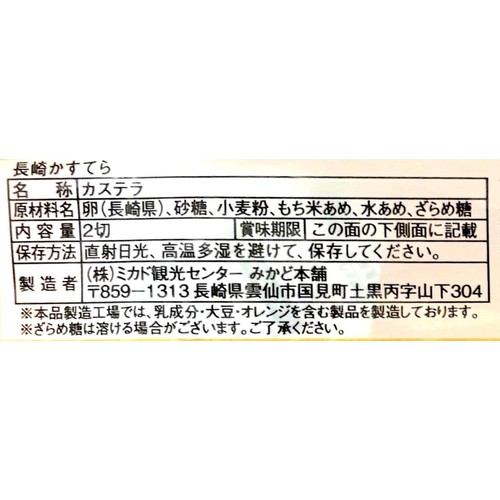 長崎かすてら
名 称 カステラ
原材料名 卵(長崎県)、砂糖、小麦粉、もち米あめ、水あめ、ざらめ糖
内容量 2切 賞味期限 この面の下側面に記載
保存方法 直射日光、高温多湿を避けて、保存してください。
製造者 (株)ミカド観光センター みかど本舗
〒859-1313 長崎県雲仙市国見町土黒丙字山下304
※本品製造工場では、乳成分・大豆・オレンジを含む製品を製造しております。
※ざらめ糖は溶ける場合がございます。ご了承ください。